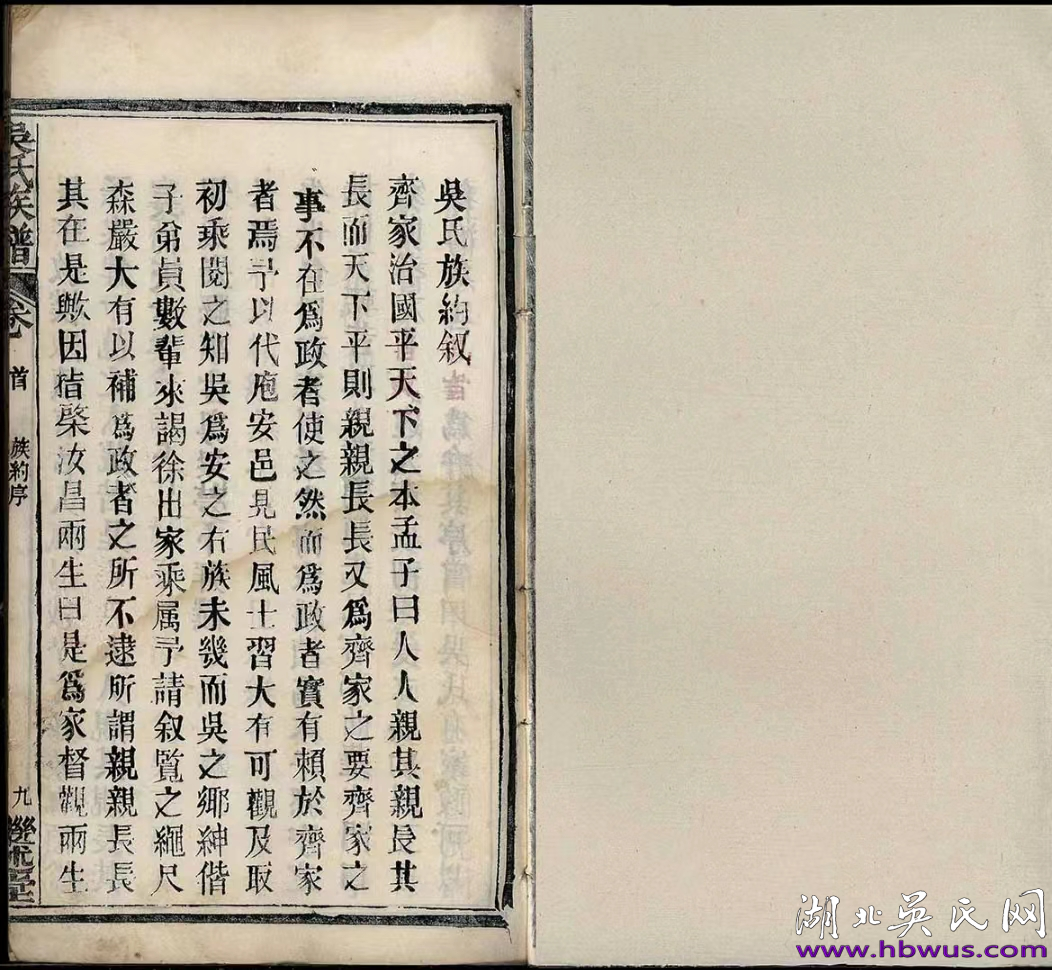 吳氏族約叙
齊家治國平天下之本孟子曰人人親其親長其
長而天下平則親親長長又爲齊家之要齊家之
事不在爲政者使之然而爲政者實有賴於齊家
者焉予以代庖安邑見民風士習大有可觀及取
初乘閱之知吳爲安之右族未幾而吳之鄉紳偕
子弟員數輩來謁徐出家乘属予請叙覧之繩尺
森嚴大有以補爲政者之所不逮所謂親親長長
其在是歟因指棨汝昌兩生曰是爲家督觀兩生
吳氏族譜
卷
首
族約序
九
堂
湖北吳氏网
www.hbwus.com